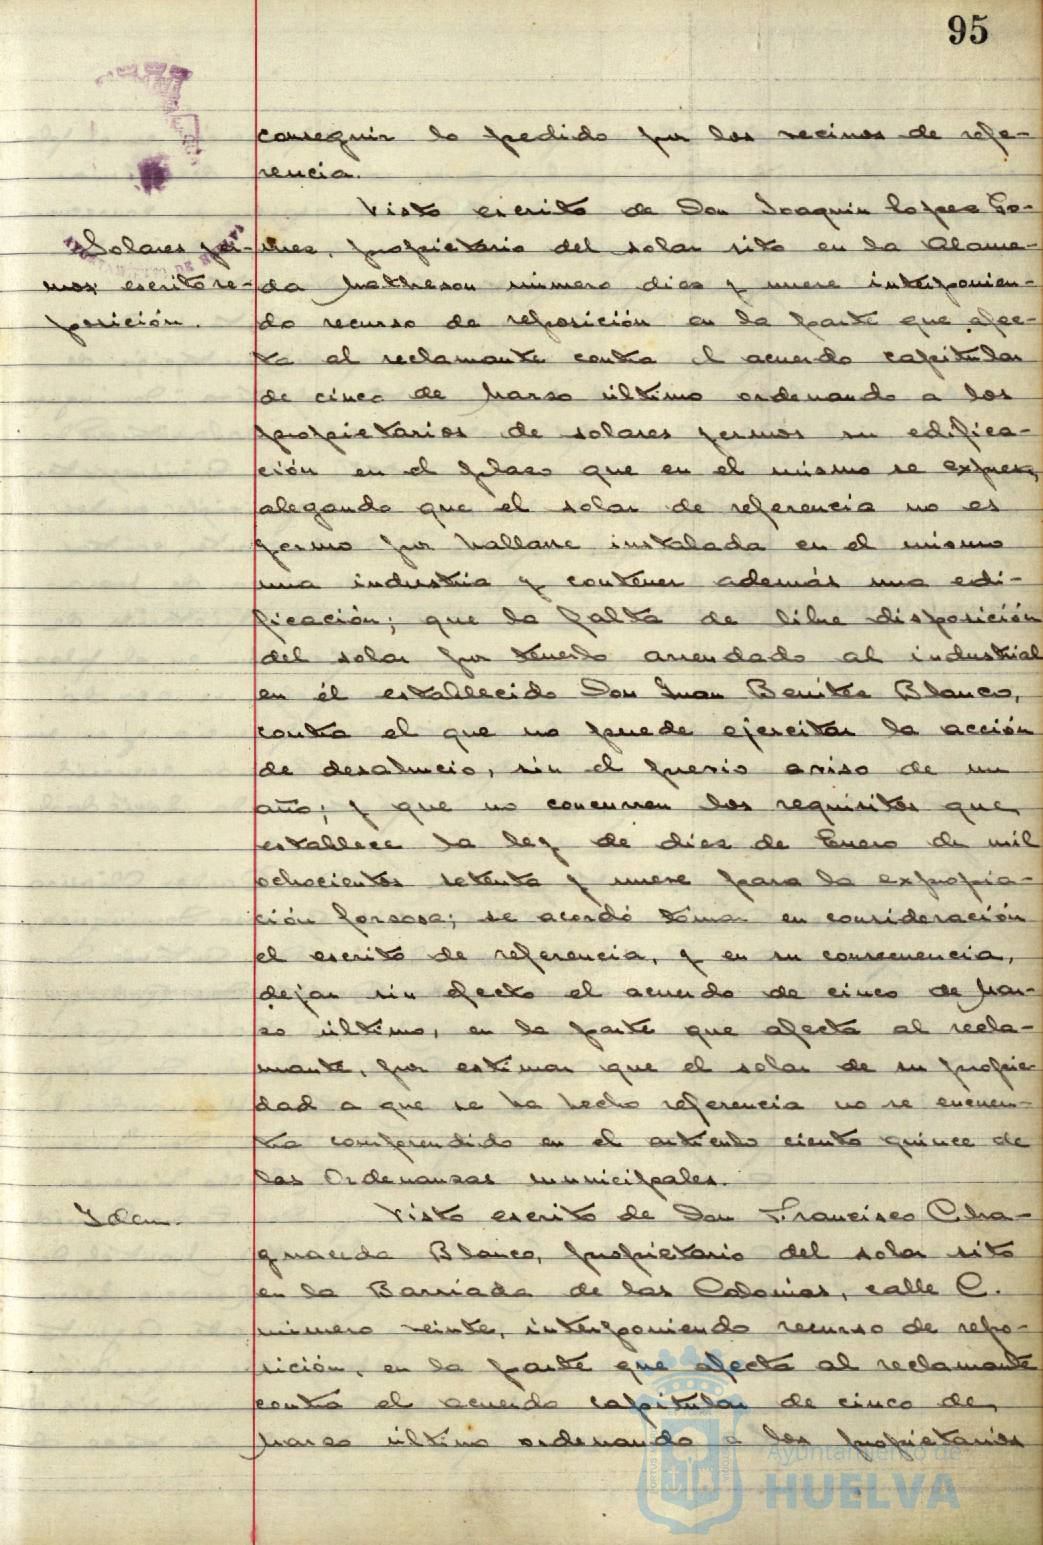 95
conseguir lo pedido por los vecinos de refe-
rencia.
Visto escrito de Don Joaquin Lopez Go-
Solares yer-
mez, propietario del solar sito en la Alame-
mos escrito re-
da Matheson número diez y nueve interponien-
posición.
do recurso de reposición en la parte que afec-
ta al reclamante contra el acuerdo capitular
de cinco de Marzo último ordenando a los
propietarios de solares yermos su edifica-
ción en el plazo que en el mismo se expresa,
alegando que el solar de referencia no es
yermo por hallarse instalada en el mismo
una industria y contener además una edi-
ficación; que la falta de libre disposición
del solar por tenerlo arrendado al industrial
en él establecido Don Juan Benitez Blanco,
contra el que no puede ejercitar la acción
de desahucio, sin el previo aviso de un
año; y que no concurren los requisitos que
establece la ley de diez de Enero de mil
ochocientos setenta y nueve para la expropia-
ción forzosa; se acordó tomar en consideración
el escrito de referencia, y en su consecuencia,
dejar sin efecto el acuerdo de cinco de Mar-
zo último, en la parte que afecta al recla-
mante, por estimar que el solar de su propie-
dad a que se ha hecho referencia no se encuen-
tra comprendido en el artículo ciento quince de
las Ordenanzas municipales.
Idem.
Visto escrito de Don Francisco Cha-
guaceda Blanco, propietario del solar sito
en la Barriada de las Colonias, calle C.
número veinte, interponiendo recurso de repo-
sición, en la parte que afecta al reclamante
contra el acuerdo capitular de cinco de
Marzo último ordenando a los propietarios
Ayuntamiento de
HUELVA